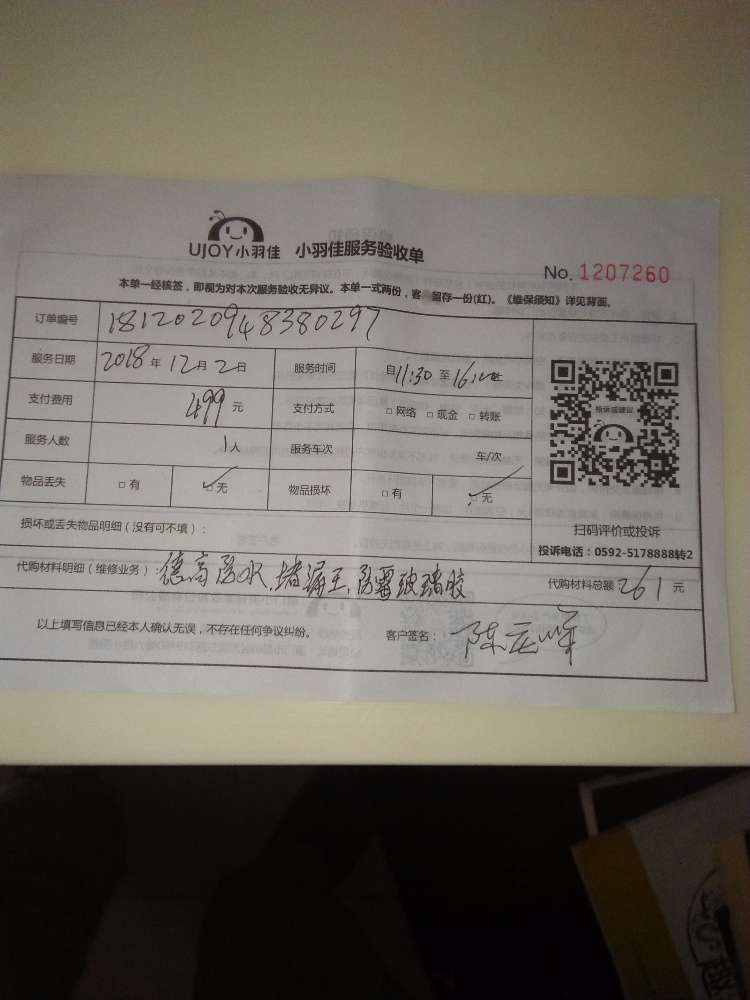 UJOY小羽佳 小羽佳服务验收单
No. 1207260
本单一经核签，即视为对本次服务验收无异议。本单一式两份，客 留存一份(红)。《维保须知》详见背面。
订单编号 1812020948380297
服务日期 2018 年 12 月 2 日 服务时间 自 11:30 至 16:
支付费用 499 元 支付方式 □ 网络 □ 现金 □ 转账
服务人数 1 人 服务车次 车/次
物品丢失 □ 有 ✓□ 无 物品损坏 □ 有 ✓□ 无
投诉或建议
扫码评价或投诉
投诉电话：0592-5178888转2
损坏或丢失物品明细（没有可不填）：
代购材料明细（维修业务）：德高防水，堵漏王，防霉玻璃胶 代购材料总额 261 元
以上填写信息已经本人确认无误，不存在任何争议纠纷。 客户签名：陈